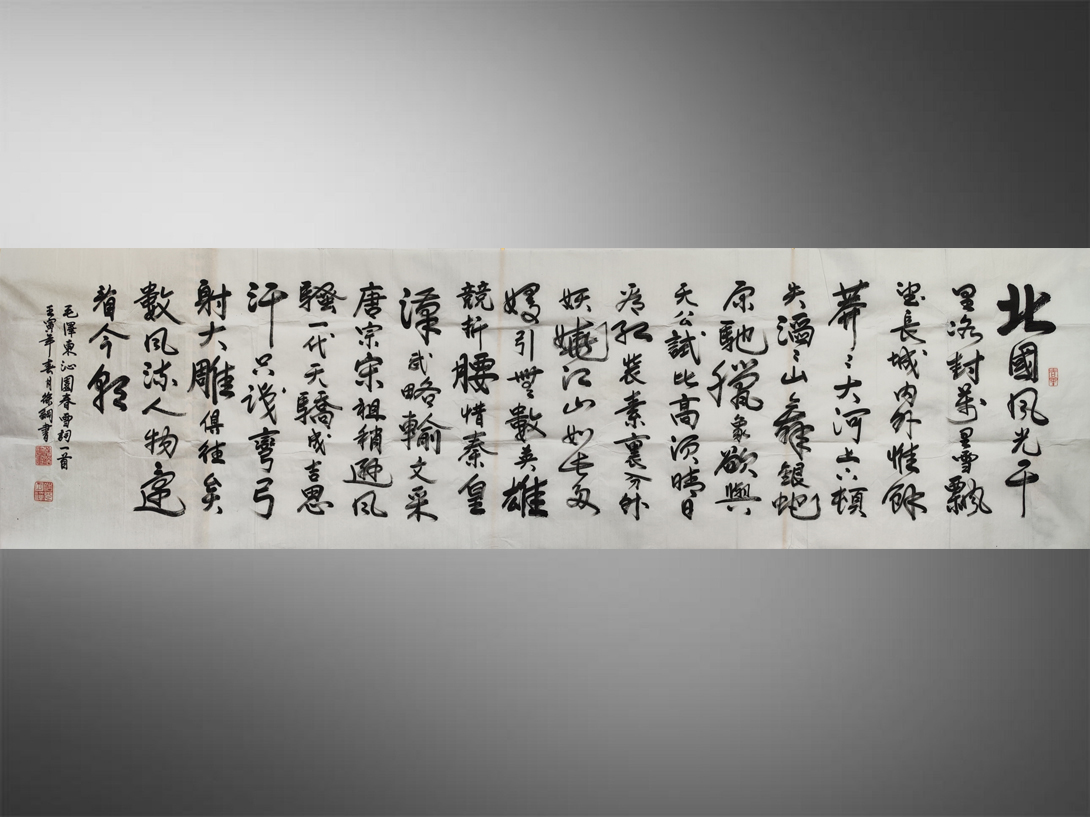 北國風光千
里冰封萬里雪飄
望長城内外惟餘
莽〻大河上下頓
失滔〻山舞銀蛇
原馳臘象欲與
天公試比高須晴日
看紅裝素裹分外
妖嬈江山如此多
嬌引無數英雄
競折腰惜秦皇
漢武略輸文采
唐宗宋祖稍遜風
騷一代天驕成吉思
汗只識彎弓
射大雕俱往矣
數風流人物還
看今朝
毛澤東沁園春雪詞一首
壬寅年春月徐書